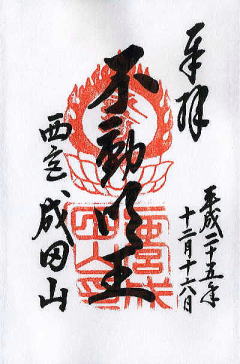 奉拝
平成二十五年
十二月十六日
不動明王
西宮成田山